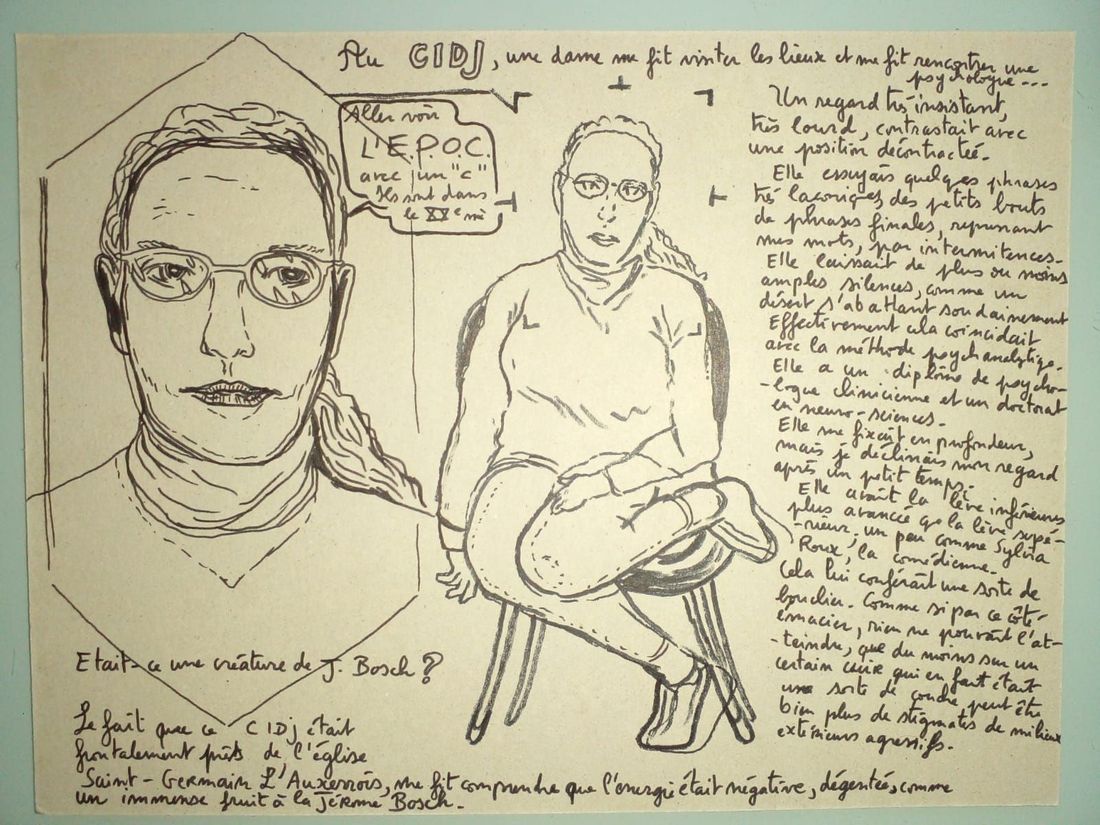 Au CIDJ, une dame me fit visiter les lieux et me fit rencontrer une
psychologue...
Aller voir
L'E.P.O.C.
avec un "c"
Ils sont dans
le XXe
Un regard très insistant,
très lourd, contrastait avec
une position décontractée.
Elle essayait quelques phrases
très laconiques des petits bouts
de phrases finales, reprenant
mes mots, par intermitences.
Elle laissait de plus ou moins
amples silences, comme un
désert s'abattant soudainement
Effectivement cela coincidait
avec la méthode psychanalytique.
Elle a un diplôme de psycho-
-logue clinicienne et un doctorat
en neuro-sciences.
Elle me fixait en profondeur,
mais je déclinais mon regard
après un petit temps.
Elle avait la lèvre inférieures
plus avancée qe la lèvre supé-
-rieur, un peu comme Sylvia
Roux, la comédienne.
Cela lui conférait une sorte de
bouclier. Comme si par ce côté
émacier, rien ne pouvait l'at-
-teindre, que du moins sur un
certain cuir qui en fait était
une sorte de coudre, peut être
bien plus de stigmates de milieux
extérieurs agressifs.
Etait-ce une créature de J. Bosch ?
Le fait que ce CIDJ était
frontalement près de l'église
Saint-Germain L'Auxerrois, me fit comprendre que l'énergie était négative, dégentée, comme
un immense fruit à la Jérome Bosch.